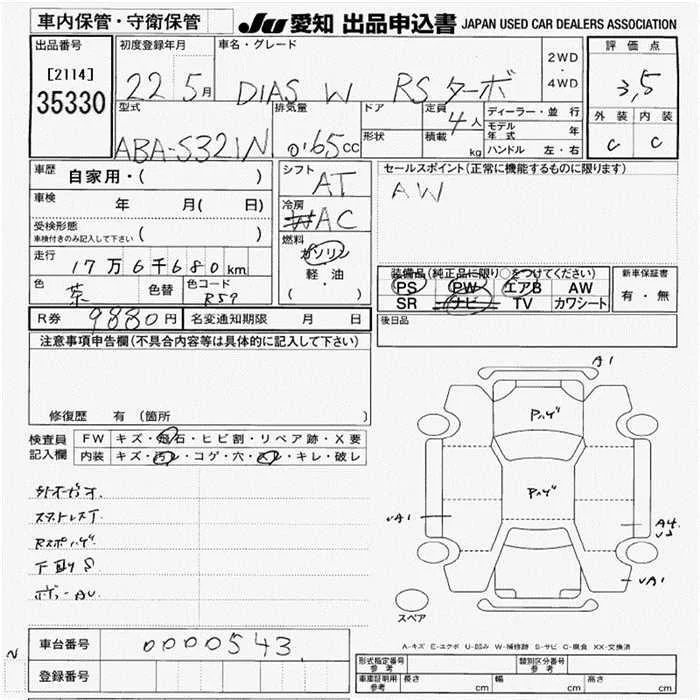 車内保管・守衛保管
JU 愛知 出品申込書 JAPAN USED CAR DEALERS ASSOCIATION
出品番号
[2114]
35330
初度登録年月
22 5月
車名・グレード
DIAS W RS ターボ
2WD
・
4WD
評価点
3,5
外装 内装
C C
型式
ABA-S321N
排気量
0.65cc
ドア
形状
定員
4人
積載
kg
ディーラー・並行
モデル年式 年
ハンドル 左・右
車歴
自家用・( )
車検
年 月( 日)
受検形態
車検付きのみ記入して下さい ( )
走行
17万6千680km
色
茶
色替
色コード
R59
シフト
AT
冷房
AC
燃料
ガソリン
軽・油
( )
セールスポイント(正常に機能するものに限ります)
AW
装備品(純正品に限り○をつけてください)
PS PW エアB AW
SR ナビ TV カワシート
新車保証書
有・無
後日品
R券 9880円 名変通知期限 月 日
注意事項申告欄(不具合内容等は具体的に記入して下さい)
修復歴 有(箇所 )
検査員
記入欄
FW キズ・飛石・ヒビ割・リペア跡・X要
内装 キズ・汚レ・コゲ・穴・スレ・キレ・破レ
A1
Pハゲ
Pハゲ
UA1
A4
UA1
スペア
A-キズ E-エクボ U-凹み W-補修跡 S-サビ C-腐食 XX-交換済
車台番号
0000543
登録番号
形式指定番号
参考
類別区分番号
参考
車庫証明用
参考
長さ cm 幅 cm 高さ cm